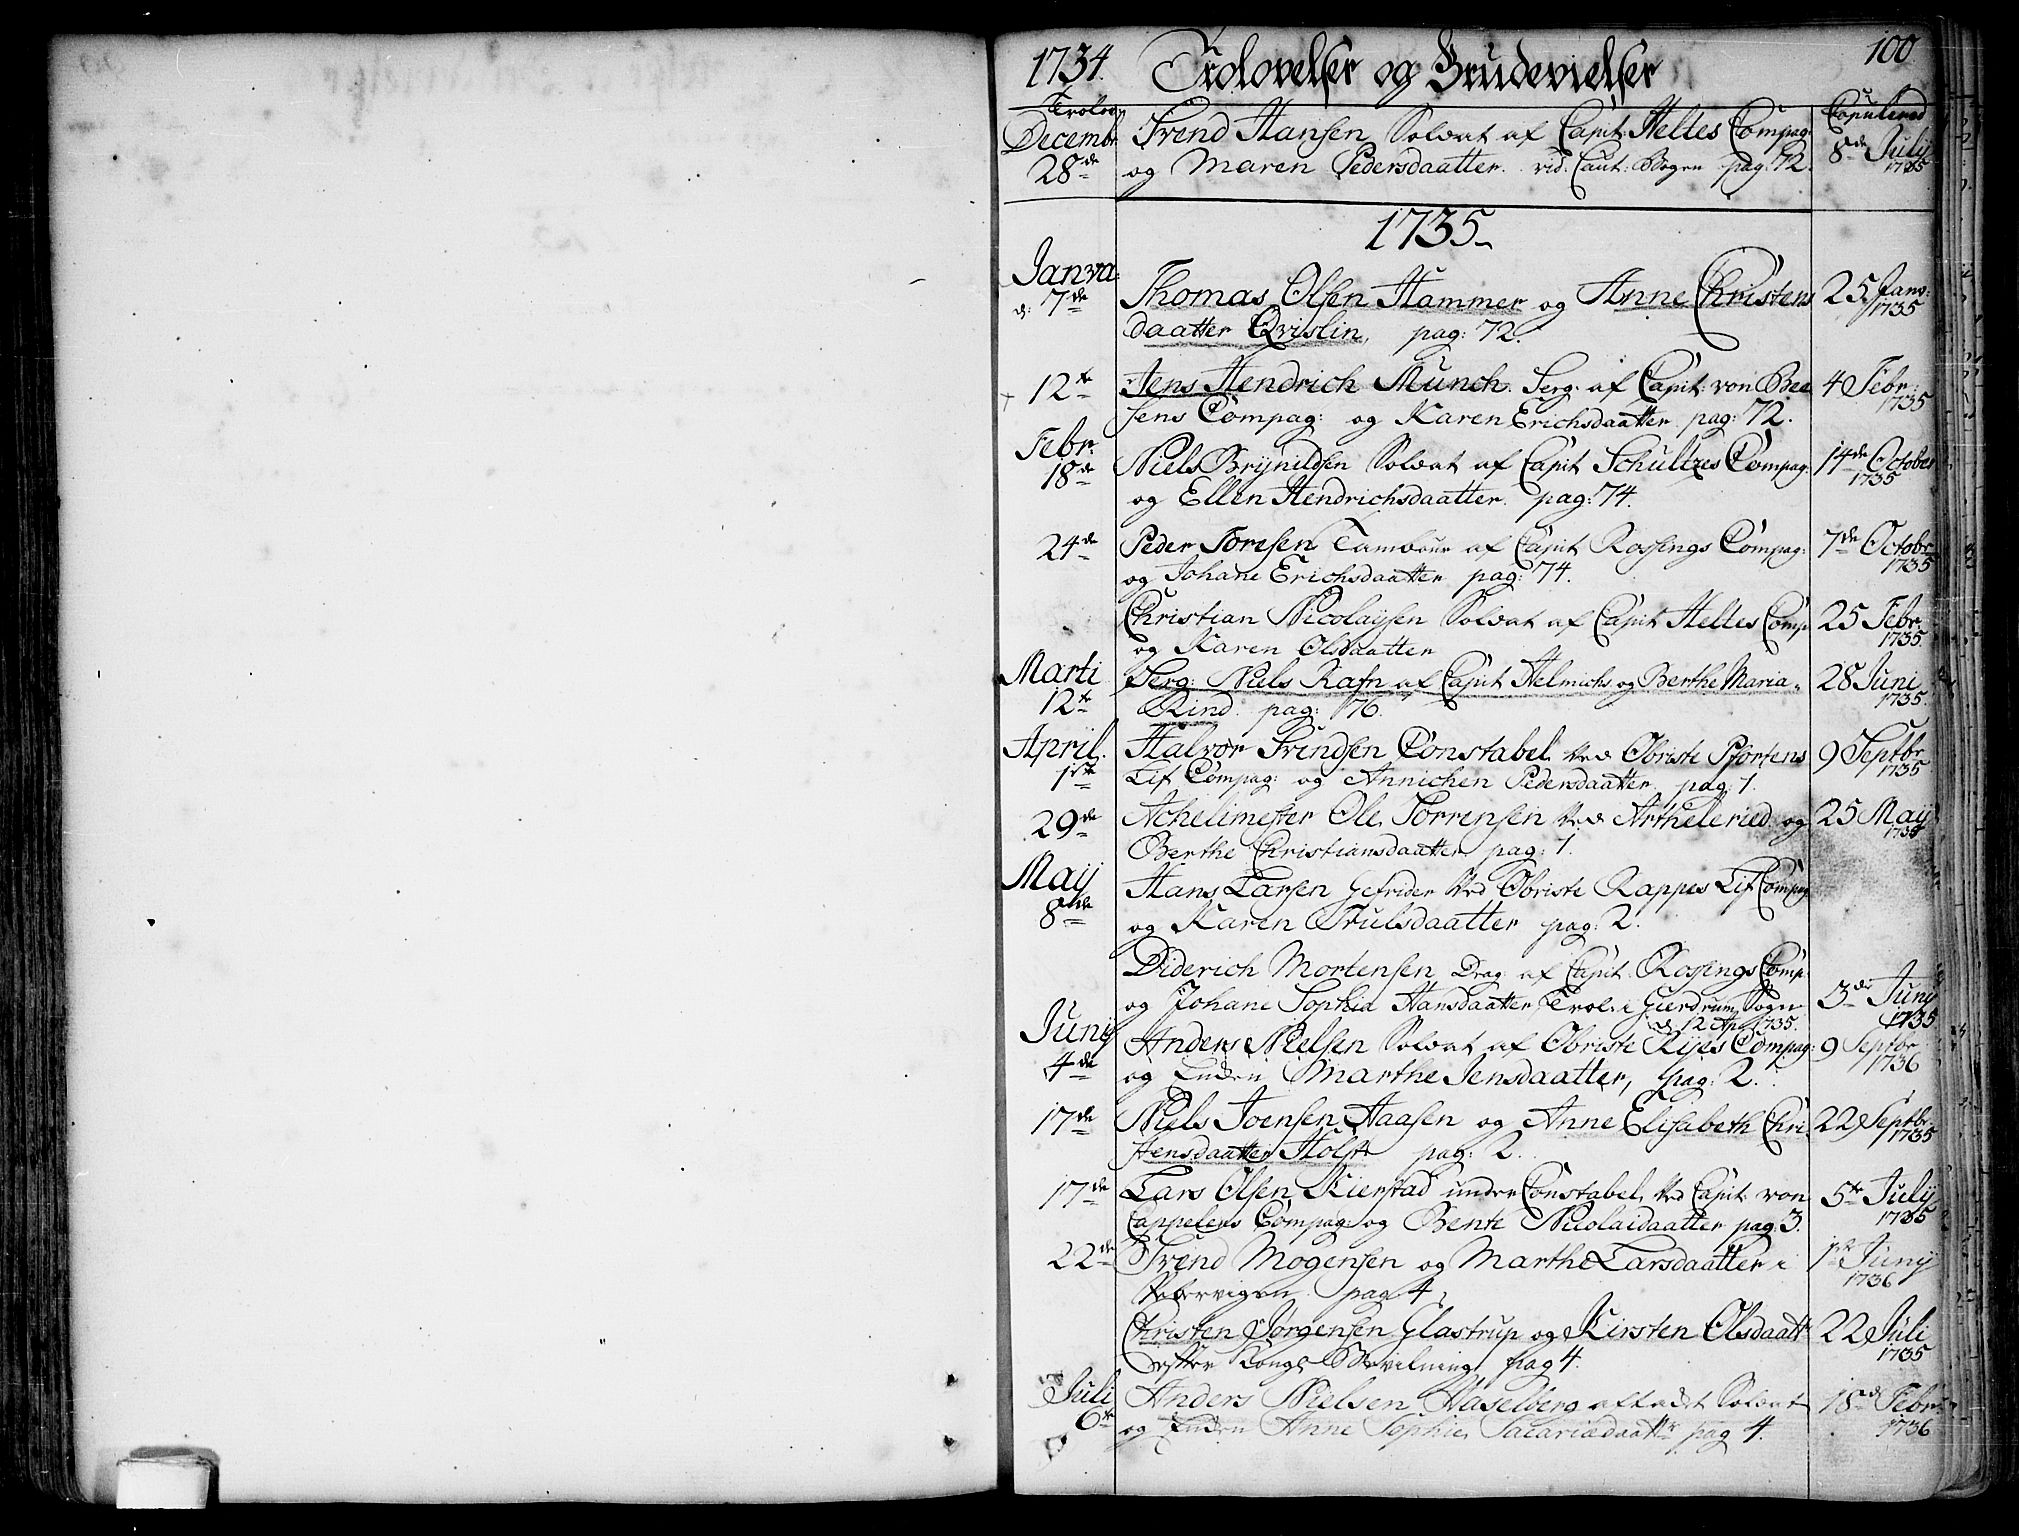 1734. Trolovelser og Brudevielser 100
Trolov. Copulered
Decembr Svend Hansen Soldat af Capit: Heltes Compag: 8de July
28de og Maren Pedersdaatter. vid. Caut: Bogen pag: 72. 1735
1735
Janva:
d: 7de Thomas Olsen Hammer og Anne Christens 25 Janv: 1735
daatter Qvislin, pag: 72.
12te Jens Hendrich Munch. Serg: af Capit: von Bee 4 Febr: 1735
sens Compag: og Karen Erichsdaatter pag: 72.
Febr:
18de Niels Brynildsen Soldat af Capit Schultzes Compag: 14de October 1735
og Ellen Hendrichsdaatter. pag: 74.
24de Peder Toresen Tambour af Capit Rossings Compag: 7de Octobr 1735
og Johane Erichsdaatter pag: 74.
Christian Nicolaysen Soldat af Capit Heltes Comp 25 Febr: 1735.
og Karen Olsdaatter
Marti Serg: Niels Rafn af Capit Helmichs og Berthe Maria 28 Juni 1735.
12te Rind. pag: 76.
April. Halvor Svindsen Constabel ved Obriste Pfortens 9 Septbr 1735
1ste Lif Compag: og Annichen Pedersdaatter pag: 1.
29de Achelimester Ole Torrensen ved Artheleried. og 25 May 1735
Berthe Christiansdaatter pag: 1.
May Hans Larsen Gefrider ved Obriste Kappes Lif Compag
8de og Karen Trulsdaatter pag: 2.
Diderich Mortensen Drag: af Capit: Rossings Comp:
og Johane Sophia Hansdaatter, Trol: i Gierdrum Sogn 3de Juny 1735
d. 12 Ap: 1735.
Juny Anders Nielsen Soldat af Obriste Rijes Compag: 9 Septbr 1736
4de og Enden Marthe Jensdaatter, pag: 2.
17de Niels Joensen Aaasen og Anne Elisabeth Chri 22 Septbr: 1735
stensdaatter Holst pag: 2.
17de Lars Olsen Kierstad under Constabel ved Capit: von 5te July 1735
Cappelens Compag: og Bente Nicolaidaatter pag: 3.
22de Svend Mogensen og Marthe Larsdaatter i 1ste Juny 1736
pag 4,
Christen Jørgensen Glastrup og Kirsten Olsdaatt 22 Juli 1735
efter Kongl Bevilning pag 4.
Juli Anders Nielsen Haselberg aftadt Soldat 18de Febr: 1736
6te og Enden Anne Sophie Sacariædaattr pag 4.